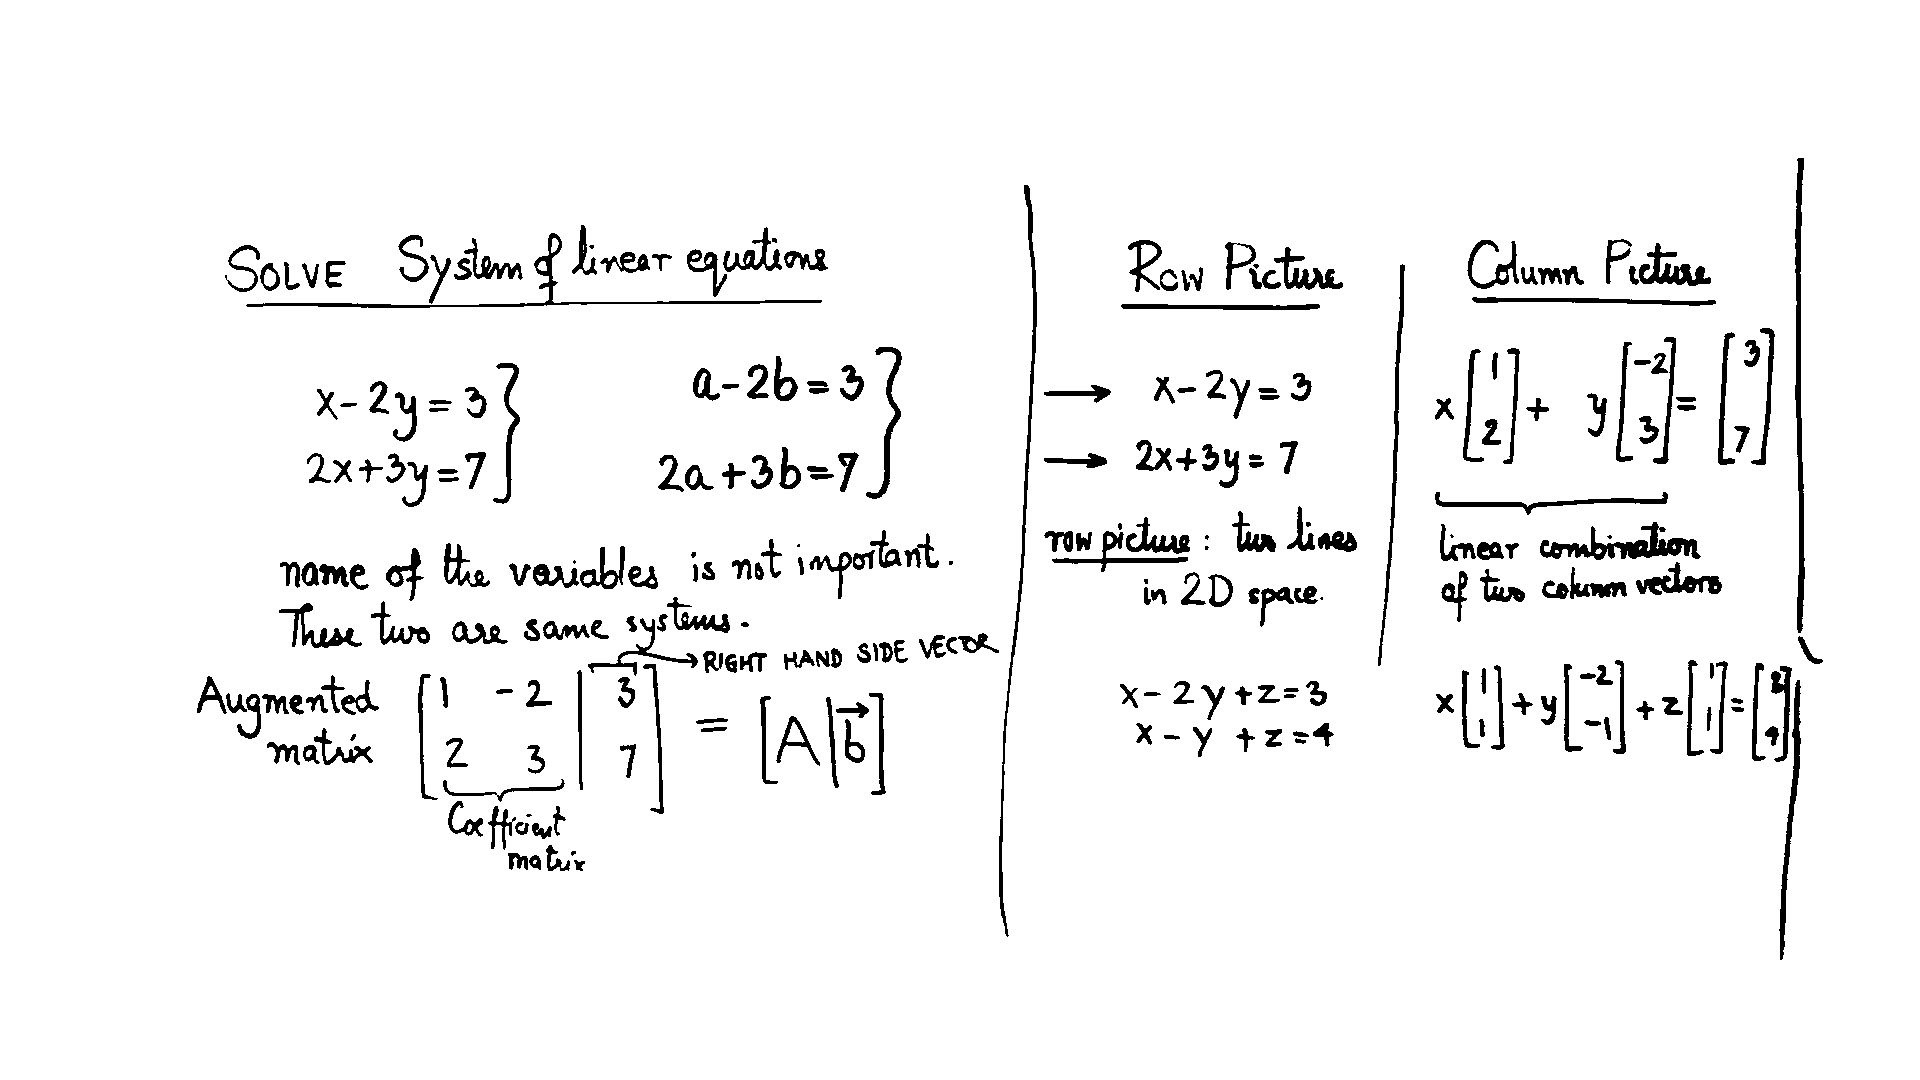 SOLVE System of linear equations
x-2y=3
2x+3y=7
a-2b=3
2a+3b=7
name of the variables is not important.
These two are same systems.
RIGHT HAND SIDE VECTOR
Augmented matrix
[1 -2 | 3]
[2 3 | 7]
= [A|b⃗]
Coefficient
matrix
Row Picture
→ x-2y=3
→ 2x+3y=7
row picture: two lines
in 2D space.
x-2y+z=3
x-y+z=4
Column Picture
x[1 2] + y[-2 3] = [3 7]
linear combination
of two column vectors
x[1 1] + y[-2 -1] + z[1 1] = [3 4]